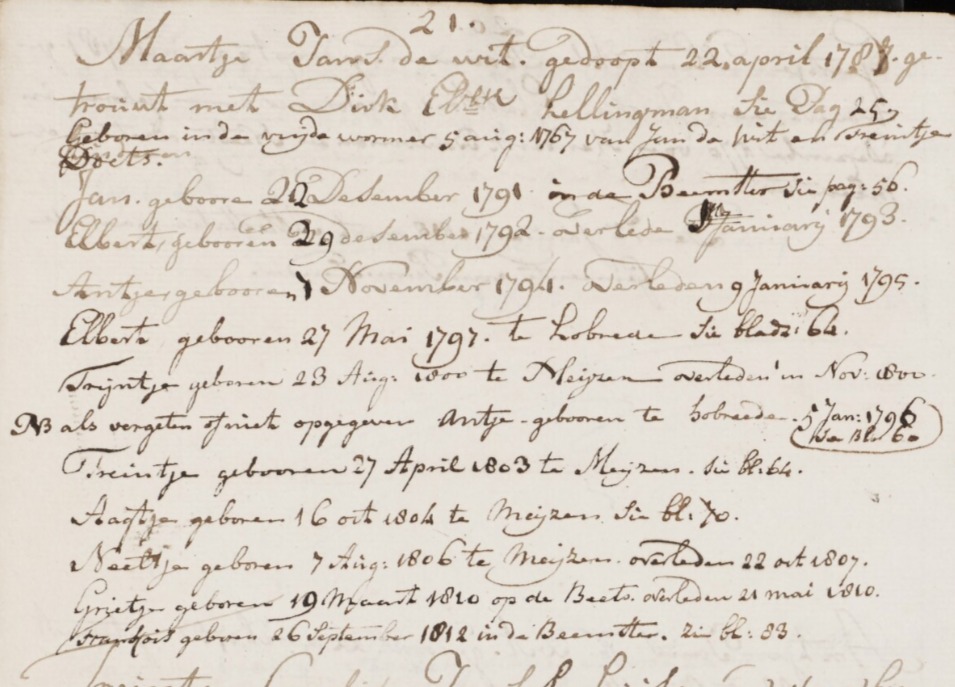 21.
Maartje Jans. de wit. gedoopt 22 april 1787. ge-
trouwt met Dirk Elbtse Kellingman Sie Pag 25
Geboren in de wyde wormer 5 aug: 1767 van Jan de wit en Treintje
Doets.
Jan. geboore 22 Desember 1791 in de Beemster Sie pag: 56.
Elbert, gebooren 29 desember 1792. overlede Janiuarij 1793.
Antje gebooren 1 November 1794. overleden 9 Janiuarij 1795.
Elbert gebooren 27 Mai 1797. te hobrede Sie bladz: 64.
Trijntje geboren 23 Aug: 1800 te Meijzen overleden in Nov: 1800.
NB als vergeten of niet opgegeven Antje gebooren te hobreede. 5 Jan: 1796
Bl. 60
Treintje gebooren 27 April 1803 te Meijzen. Sie bl: 64.
Aagtje geboren 16 oct 1804 te Meijzen Sie bl: 70.
Neeltje geboren 7 Aug: 1806 te Meijzen. overleden 22 oct 1807.
Grietje geboren 19 Maart 1810 op de Beets. overleden 21 mai 1810.
François geboren 26 September 1812 in de Beemster. zie bl: 83.